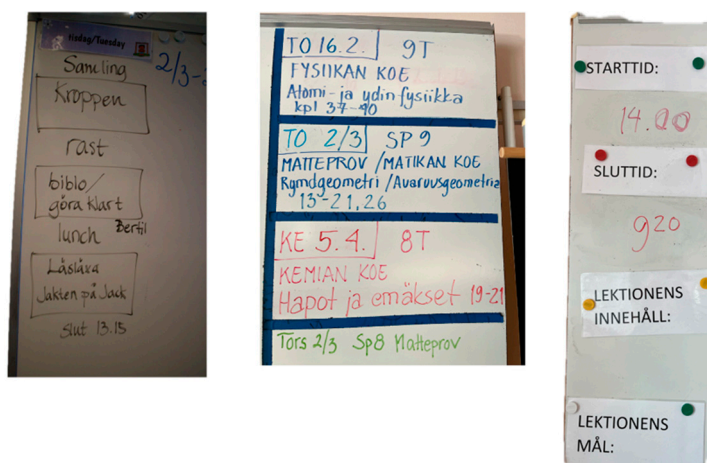 tisdag/Tuesday
Samling
2/3-
Kroppen
rast
biblo/
göra klart
Bertil
lunch
Läsläxa
Jakten på Jack
slut 13.15
TO 16.2. 9T
FYSIIKAN KOE
Atomi- ja ydinfysiikka
kpl 37-40
TO 2/3 SP9
MATTEPROV / MATIKAN KOE
Rymdgeometri / Avaruusgeometria
13-21, 26
KE 5.4. 8T
KEMIAN KOE
Hapot ja emäkset 19-21
Tors 2/3 Sp8 Matteprov
STARTTID:
14.00
SLUTTID:
920
LEKTIONENS
INNEHÅLL:
LEKTIONENS
MÅL: